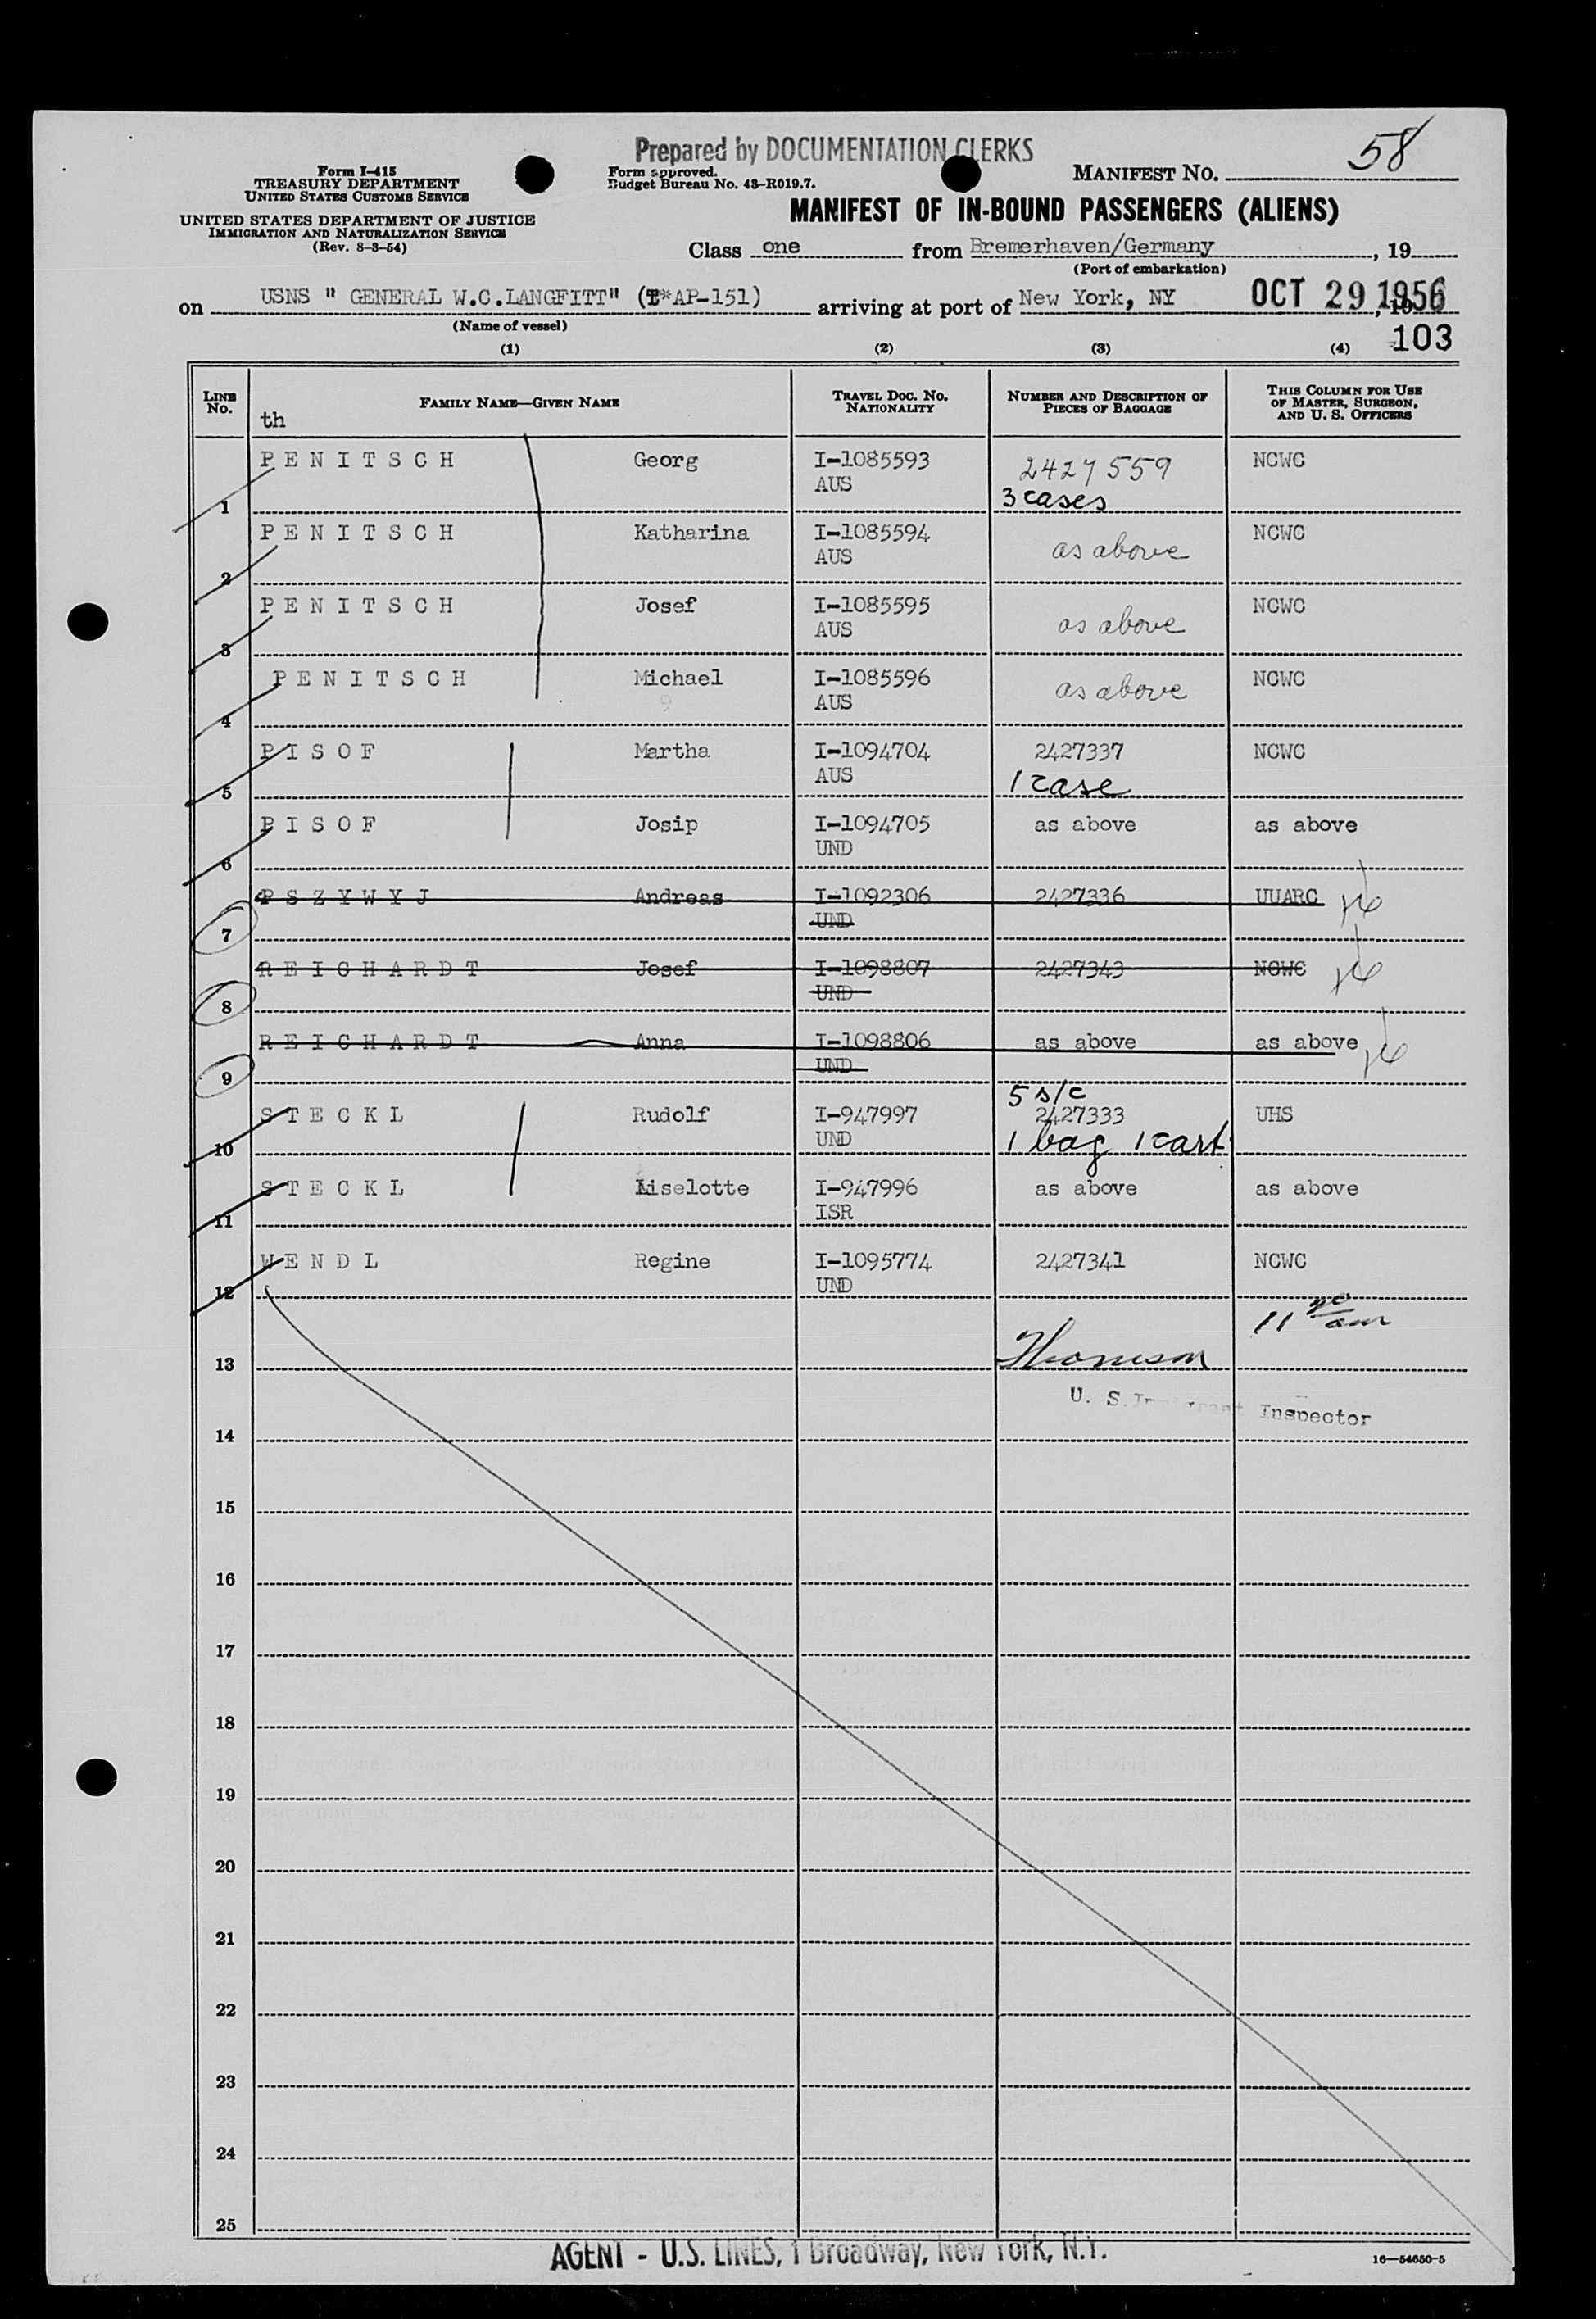 Prepared by DOCUMENTATION CLERKS
58
Form I-415
TREASURY DEPARTMENT
UNITED STATES CUSTOMS SERVICE
UNITED STATES DEPARTMENT OF JUSTICE
IMMIGRATION AND NATURALIZATION SERVICE
(Rev. 8-3-54)
Form approved.
Budget Bureau No. 43-R019.7.
MANIFEST NO.
MANIFEST OF IN-BOUND PASSENGERS (ALIENS)
Class one from Bremerhaven/Germany, 19
(Port of embarkation)
on USNS " GENERAL W.C.LANGFITT" (T*AP-151) arriving at port of New York, NY OCT 29 1956
(Name of vessel)
103
(1) (2) (3) (4)
LINE NO. FAMILY NAME—GIVEN NAME TRAVEL DOC. NO. NATIONALITY NUMBER AND DESCRIPTION OF PIECES OF BAGGAGE THIS COLUMN FOR USE OF MASTER, SURGEON, AND U. S. OFFICERS
th
P E N I T S C H Georg I-1085593 2427559 NCWC
AUS 3 cases
1
P E N I T S C H Katharina I-1085594 as above NCWC
AUS
2
P E N I T S C H Josef I-1085595 as above NCWC
AUS
3
P E N I T S C H Michael I-1085596 as above NCWC
AUS
4
P I S O F Martha I-1094704 2427337 NCWC
AUS 1 case
5
P I S O F Josip I-1094705 as above as above
UND
6
P S Z Y W Y J Andreas I-1092306 2427336 UUARC
UND
7
R E I C H A R D T Josef I-1098807 2427343 NCWC
UND
8
R E I C H A R D T Anna I-1098806 as above as above
UND
9
5 s/c
S T E C K L Rudolf I-947997 2427333 UHS
UND 1 bag 1 cart
10
S T E C K L Liselotte I-947996 as above as above
ISR
11
W E N D L Regine I-1095774 2427341 NCWC
UND
12
11 am
13 Thomson
U. S. Inspector
14
15
16
17
18
19
20
21
22
23
24
25
AGENT - U.S. LINES, 1 Broadway, New York, N.Y.
16—54650-5